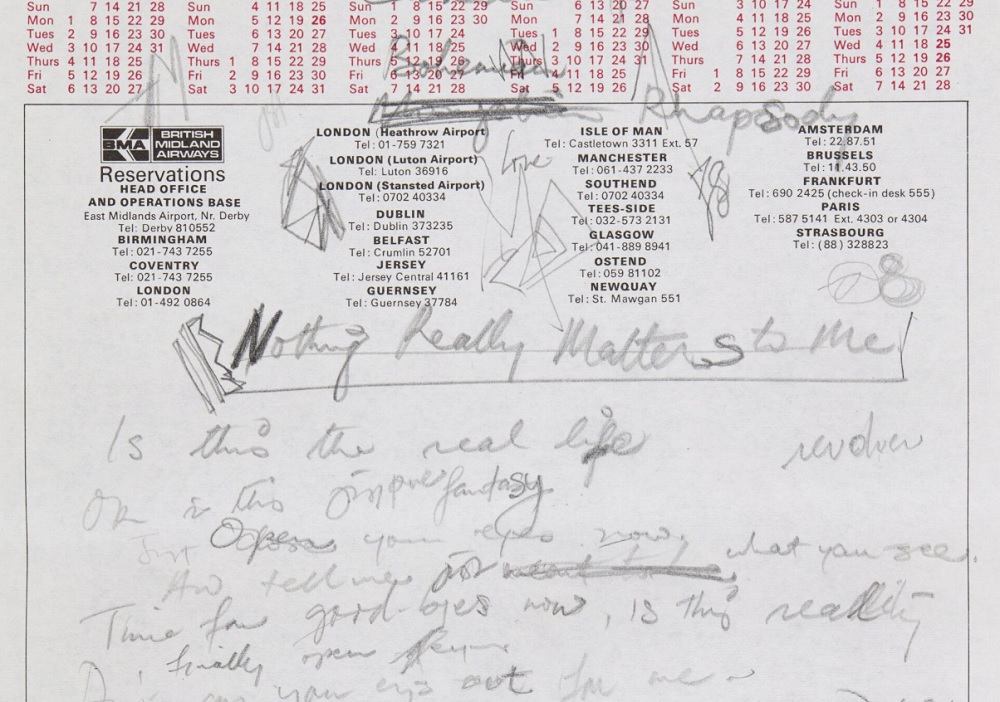 Sun 7 14 21 28 Sun 4 11 18 25 Sun 1 8 15 22 29 Sun 6 13 20 27 Sun 3 10 17 24 31 Sun 1 8 15 22 29
Mon 1 8 15 22 29 Mon 5 12 19 26 Mon 2 9 16 23 30 Mon 7 14 21 28 Mon 4 11 18 25 Mon 2 9 16 23 30
Tues 2 9 16 23 30 Tues 6 13 20 27 Tues 3 10 17 24 Tues 1 8 15 22 29 Tues 5 12 19 26 Tues 3 10 17 24 31
Wed 3 10 17 24 31 Wed 7 14 21 28 Wed 4 11 18 25 Wed 2 9 16 23 30 Wed 6 13 20 27 Wed 4 11 18 25
Thurs 4 11 18 25 Thurs 1 8 15 22 29 Thurs 5 12 19 26 Thurs 3 10 17 24 31 Thurs 7 14 21 28 Thurs 5 12 19 26
Fri 5 12 19 26 Fri 2 9 16 23 30 Fri 6 13 20 27 Fri 4 11 18 25 Fri 1 8 15 22 29 Fri 6 13 20 27
Sat 6 13 20 27 Sat 3 10 17 24 31 Sat 7 14 21 28 Sat 5 12 19 26 Sat 2 9 16 23 30 Sat 7 14 21 28
Bohemian
Rhapsody
BMA BRITISH
MIDLAND
AIRWAYS
Reservations
HEAD OFFICE
AND OPERATIONS BASE
East Midlands Airport, Nr. Derby
Tel: Derby 810552
BIRMINGHAM
Tel: 021-743 7255
COVENTRY
Tel: 021-743 7255
LONDON
Tel: 01-492 0864
LONDON (Heathrow Airport)
Tel: 01-759 7321
LONDON (Luton Airport)
Tel: Luton 36916
LONDON (Stansted Airport)
Tel: 0702 40334
DUBLIN
Tel: Dublin 373235
BELFAST
Tel: Crumlin 52701
JERSEY
Tel: Jersey Central 41161
GUERNSEY
Tel: Guernsey 37784
Love
ISLE OF MAN
Tel: Castletown 3311 Ext. 57
MANCHESTER
Tel: 061-437 2233
SOUTHEND
Tel: 0702 40334
TEES-SIDE
Tel: 032-573 2131
GLASGOW
Tel: 041-889 8941
OSTEND
Tel: 059 81102
NEWQUAY
Tel: St. Mawgan 551
AMSTERDAM
Tel: 22.87.51
BRUSSELS
Tel: 11.43.50
FRANKFURT
Tel: 690 2425 (check-in desk 555)
PARIS
Tel: 587 5141 Ext. 4303 or 4304
STRASBOURG
Tel: (88) 328823
Nothing Really Matters to Me
Is this the real life revolver
Or is this fantasy
Just Open your eyes now, what you see.
And tell me
Time for good-byes now, is this reality
finally open
your eyes out for me